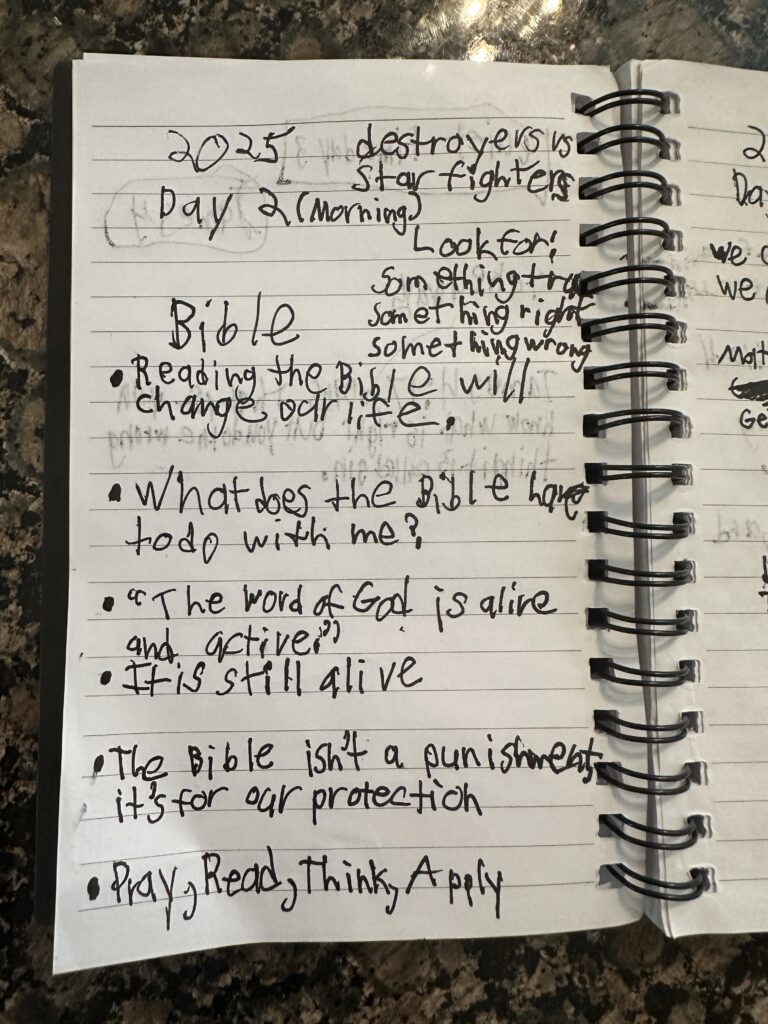 2025
Day 2 (Morning)
destroyers vs
Star fighters
Look for:
something true
something right
something wrong
Bible
• Reading the Bible will
change our life.
• What does the Bible have
to do with me?
• “The word of God is alive
and active.”
• It is still alive
• The Bible isn't a punishment,
it's for our protection
• Pray, Read, Think, Apply
2
Day
we
we
Matt
Ge